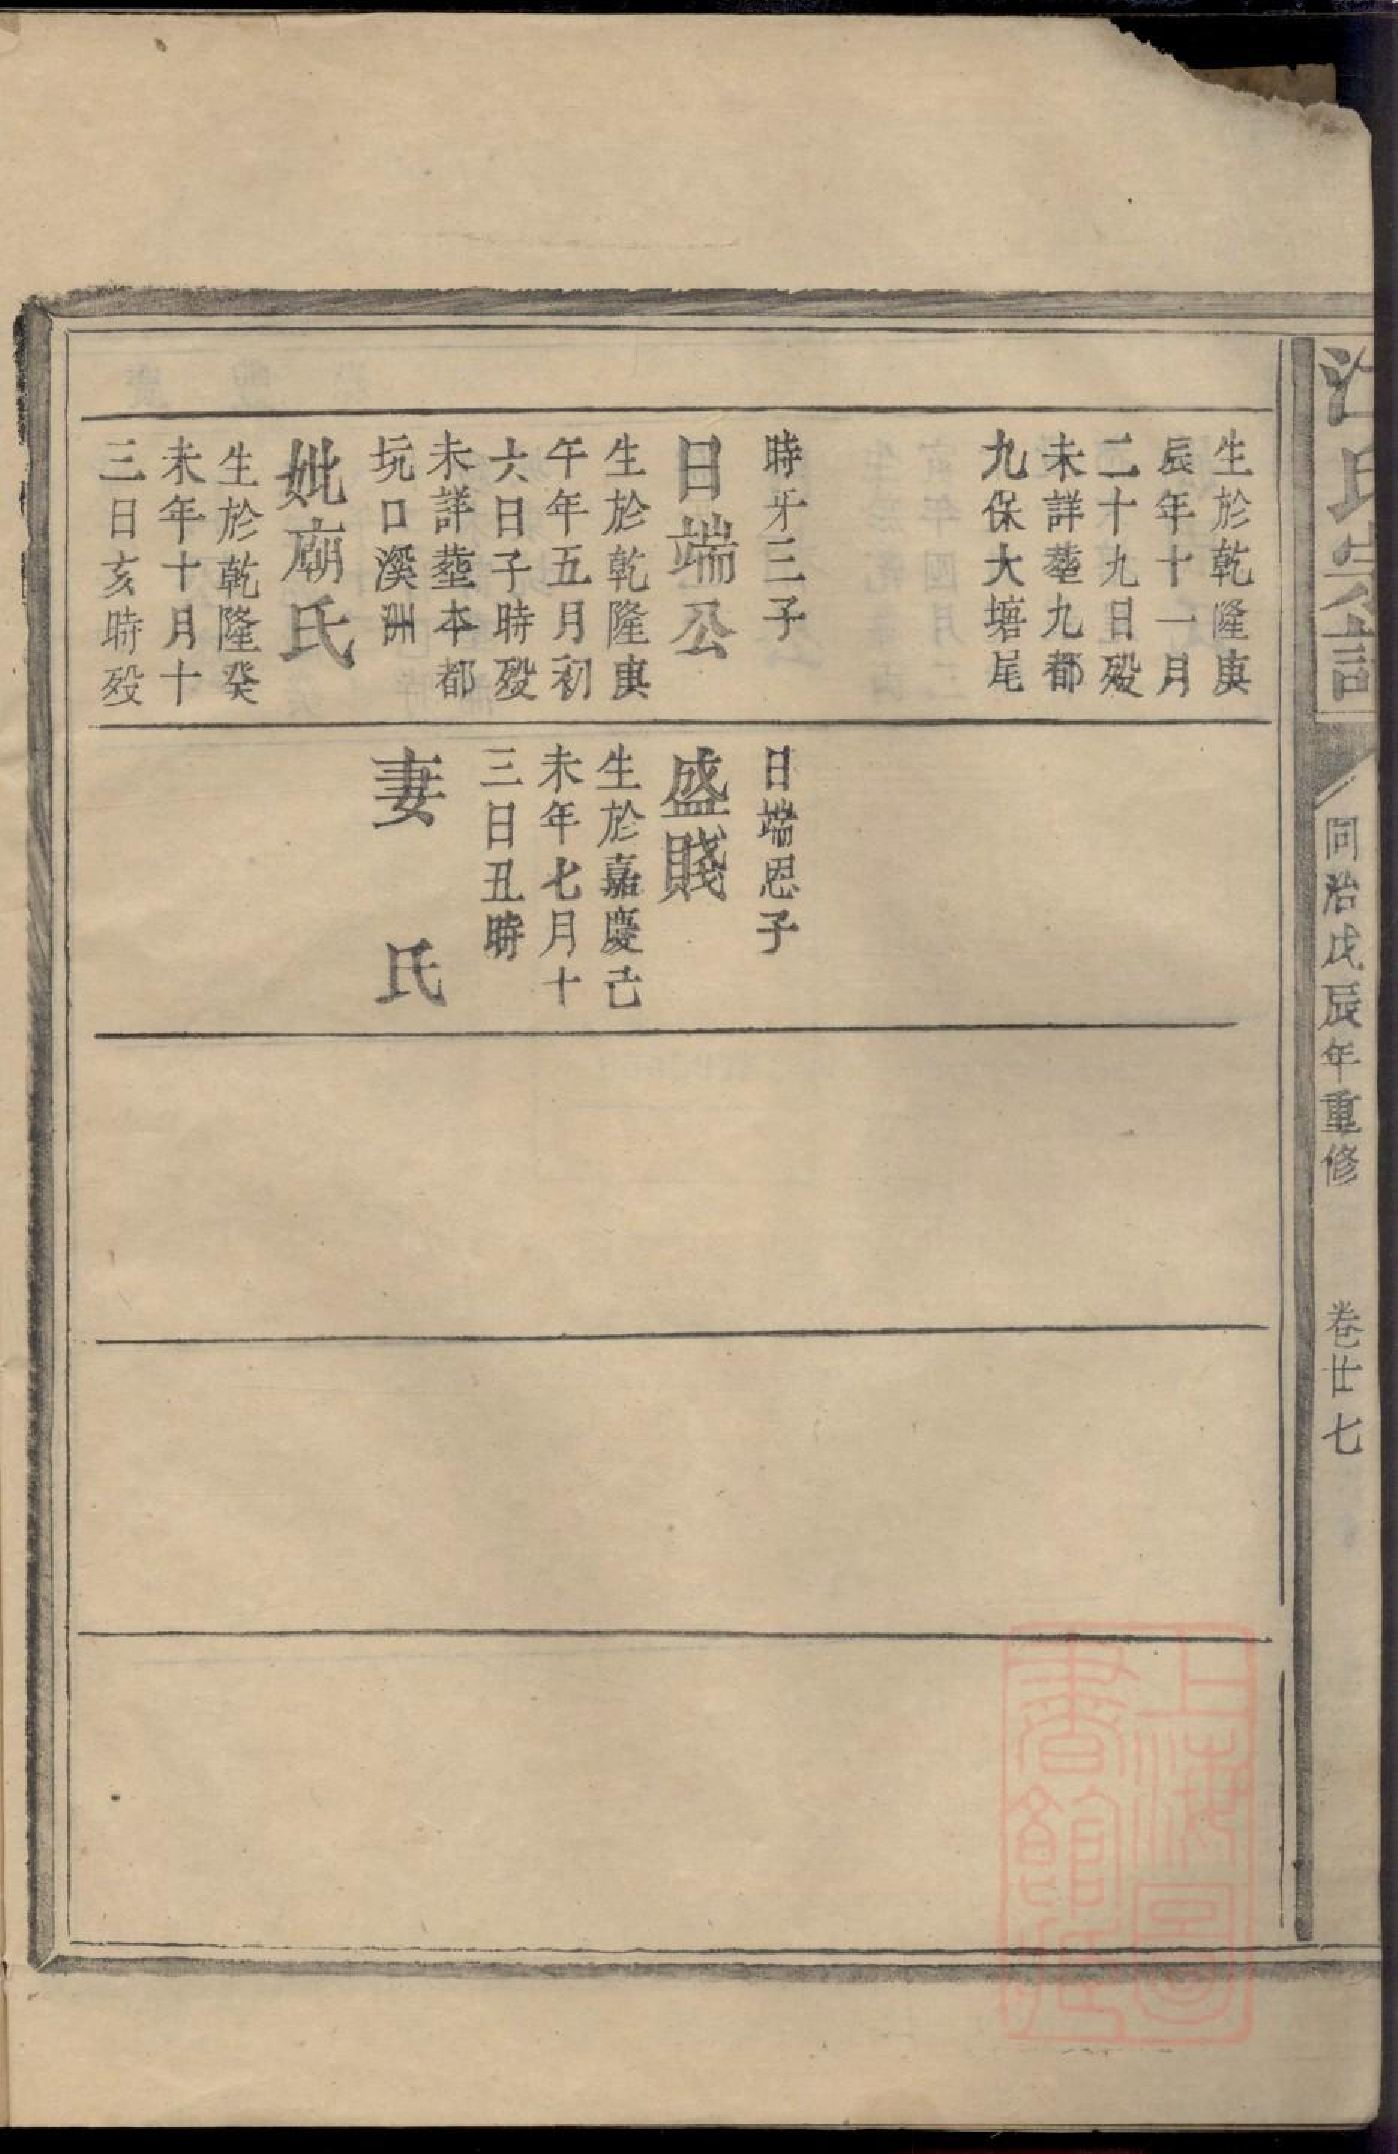 江氏宗譜
同治戊辰年重修
卷廿七
生於乾隆庚
辰年十一月
二十九日殁
未詳塟九都
九保大塘尾
時牙三子
日端公
生於乾隆庚
午年五月初
六日子時殁
未詳塟本都
坑口溪洲
妣廟氏
生於乾隆癸
未年十月十
三日亥時殁
日端恩子
盛賤
生於嘉慶己
未年七月十
三日丑時
妻氏
上海圖
書館藏